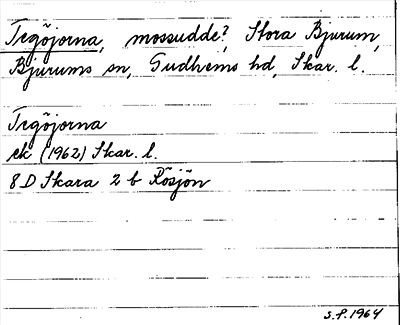 Tegöjorna, mossudde?, Stora Bjurum,
Bjurums sn, Gudhems hd, Skar. l.
Tegöjorna
ek (1962) Skar. l.
8 D Skara 2 b Rösjön
S.P. 1964